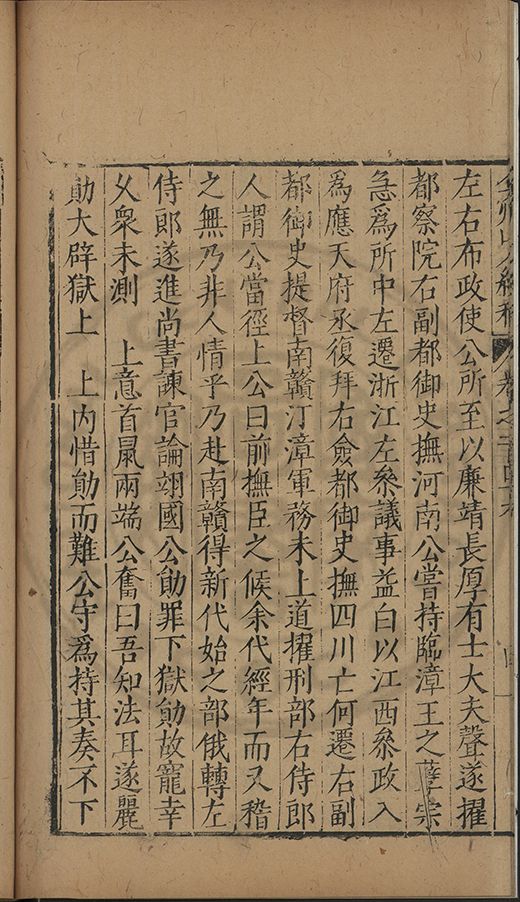 左右布政使公所至以廉靖長厚有士大夫聲遂擢
都察院右副都御史撫河南公嘗持臨漳王之孽宗
急爲所中左遷浙江左叅議事益白以江西叅政入
爲應天府丞復拜右僉都御史撫四川亡何遷右副
都御史提督南贛汀漳軍務未上道擢刑部右侍郎
人謂公當徑上公曰前撫臣之候余代經年而又稽
之無乃非人情乎乃赴南贛得新代始之部俄轉左
侍郎遂進尚書諫官論翊國公勛罪下獄勛故寵幸
乂衆未測　上意首鼠兩端公奮曰吾知法耳遂麗
勛大辟獄上　上内惜勛而難公守爲持其奏不下